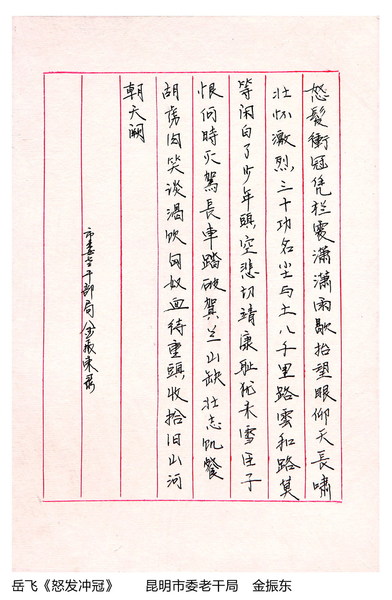 怒髮衝冠凭栏處瀟瀟雨歇抬望眼仰天長嘯
壮怀激烈,三十功名尘与土八千里路雲和路莫
等闲白了少年頭,空悲切靖康耻犹未雪臣子
恨何時灭駕長車踏破賀兰山缺壮志饥餐
胡虏肉笑谈渴饮匈奴血待重頭收拾旧山河
朝天阙
市委老干部局金振東書
岳飞《怒发冲冠》 昆明市委老干局 金振东